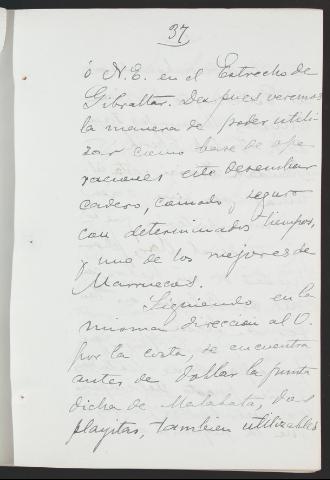 37
ó N.E. en el Estrecho de
Gibraltar. Despues veremos
la manera de poder utili
zar como base de ope
raciones este desembar
cadero, cómodo y seguro
con determinados tiempos,
y uno de los mejores de
Marruecos.
Siguiendo en la
misma dirección al O.
por la costa, se encuentra
antes de doblar la punta
dicha de Malabata, dos
playitas, tambien utilizables